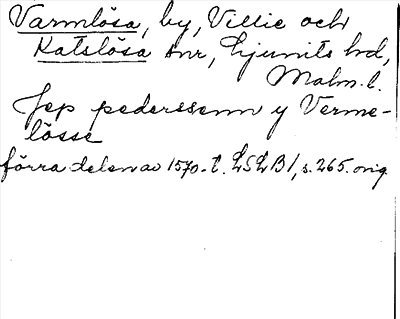 Varmlösa, by, Villie och
Katslösa snr, Ljunits hd,
Malm. l.
Jep pederssenn y Verme-
lösse
förra delen av 1570-t. LSLB 1, s. 265. orig.